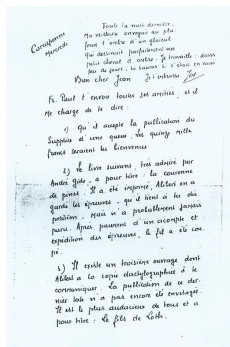 Carcassonne
Mercredi
Toute la nuit dernière,
Ma voiture envoyée au plu
fond l'ombre d'un glaïeul
qui dessinait parfaitement un
petit cheval d'ombre. Je travaille : dans
peu de jours, tu sauras si c'était en vain
Bien cher Jean Je t'embrasse
Fr. Paul t'envoie toutes ses amitiés, et il
Me charge de te dire :
1) Qu'il accepte la publication du
Supplice d'une queue. Les quinze mille
francs seraient les bienvenus
2) Le livre suivant, très admiré par
André Gide, a pour titre : la couronne
de pines. Il a été imprimé, Alibert en a
gardé les épreuves - qu'il tient à ta dis
position. Mais n'a probablement jamais
paru. Après paiement d'un acompte et
expédition des épreuves, le fut a été cou
pé.
3) Il existe un troisième ouvrage dont
Alibert a la copie dactylographiée à te
communiquer. La publication de ce der
nier livre n'a pas encore été envisagé.
Il est le plus audacieux de tous et a
pour titre : Le fils de Loth.